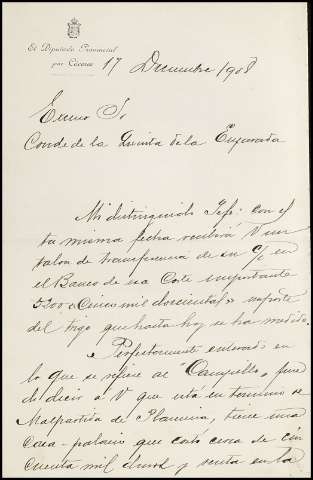 El Diputado Provincial
por Cáceres
17 Diciembre 1908
Excmo Sr
Conde de la Quinta de la Enjarada
Mi distinguido Jefe: con es
ta misma fecha recibirá V un
talón de transferencia de su c/c en
el Banco de esa Corte importante
5200 "Cinco mil doscientas" importe
del trigo que hasta hoy se ha medido.
Perfectamente enterado en
lo que se refiere al "Campillo, pue
do decir a V que está en término de
Malpartida de Plasencia, tiene una
Casa-palacio que costó cerca de cin
cuenta mil duros y renta en la